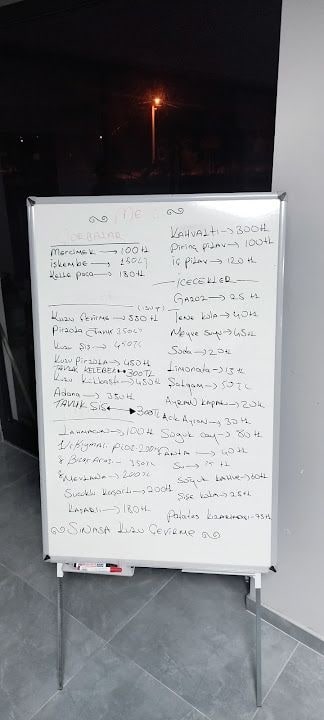 ÇORBALAR
Mercimek → 100 tL
işkembe → 150 tL
Kelle paça → 180 tL
Kuzu Çevirme → 550 tL
Pirzola 350 tL
Kuzu Şiş → 450 tL
Kuzu Pirzola → 450 tL
TAVUK KELEBEK → 300 TL
Kuzu Külbastı → 450 tL
Adana → 350 tL
TAVUK ŞİS → 300 tL
Lahmacun → 100 tL
Kıymalı Pide 200 tL
Mevlana → 200 TL
Sucuklu Kaşarlı → 200 tL
Kaşarlı → 180 tL
KAHVALTI → 300 tL
Pirinç pilav → 100 tL
İç pilav → 120 tL
İÇECEKLER
GAZOZ → 25 tL
Tene kola → 40 tL
Meyve Suyu → 45 tL
Soda → 20 tL
Limonata →
Şalgam →
AYRAN KAPALI → 20 tL
Açık Ayran → 30 tL
Soğuk çay → 80 tL
FANTA → 40 tL
Su →
Soğuk kahve → 60 tL
Şişe kola → 25 tL
Patates Kızartması → 75 tL
SİNASA KUZU ÇEVİRME